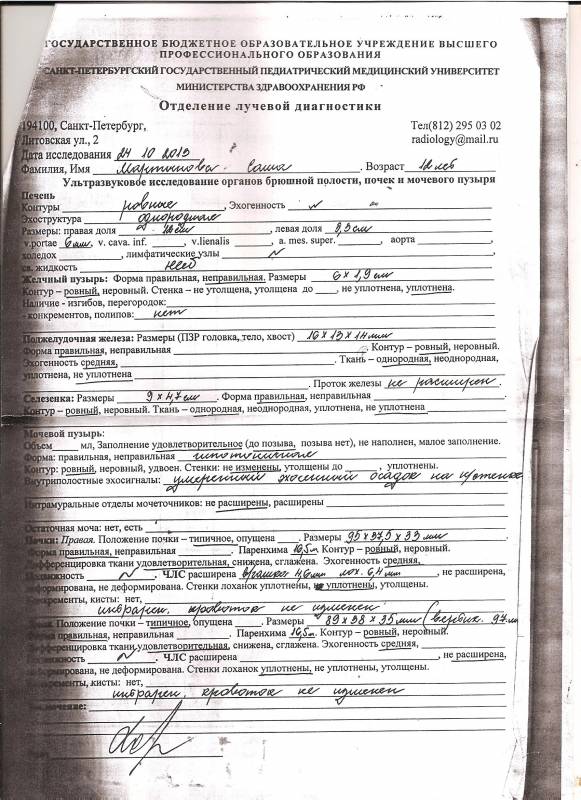 ГОСУДАРСТВЕННОЕ БЮДЖЕТНОЕ ОБРАЗОВАТЕЛЬНОЕ УЧРЕЖДЕНИЕ ВЫСШЕГО
ПРОФЕССИОНАЛЬНОГО ОБРАЗОВАНИЯ
САНКТ-ПЕТЕРБУРГСКИЙ ГОСУДАРСТВЕННЫЙ ПЕДИАТРИЧЕСКИЙ МЕДИЦИНСКИЙ УНИВЕРСИТЕТ
МИНИСТЕРСТВА ЗДРАВООХРАНЕНИЯ РФ
Отделение лучевой диагностики
194100, Санкт-Петербург, Тел(812) 295 03 02
Литовская ул., 2 radiology@mail.ru
Дата исследования 24 10 2013
Фамилия, Имя Мартынова Саша Возраст 12 лет
Ультразвуковое исследование органов брюшной полости, почек и мочевого пузыря
Печень
Контуры ровные, Эхогенность N
Эхоструктура однородная
Размеры: правая доля см, левая доля см
v.portae 6 мм, v. cava. inf. , v.lienalis , a. mes. super. , аорта ,
холедох , лимфатические узлы N
св. жидкость нет
Желчный пузырь: Форма правильная, неправильная. Размеры 6 x 1,9 см
Контур – ровный, неровный. Стенка – не утолщена, утолщена до , не уплотнена, уплотнена.
Наличие - изгибов, перегородок:
- конкрементов, полипов: нет
Поджелудочная железа: Размеры (ПЗР головка, тело, хвост) 16 x 13 x 14 мм
Форма правильная, неправильная . Контур – ровный, неровный.
Эхогенность средняя, . Ткань – однородная, неоднородная,
уплотнена, не уплотнена
. Проток железы не расширен.
Селезенка: Размеры 9 x 4,7 см . Форма правильная, неправильная
Контур – ровный, неровный. Ткань – однородная, неоднородная, уплотнена, не уплотнена
Мочевой пузырь:
Объем мл, Заполнение удовлетворительное (до позыва, позыва нет), не наполнен, малое заполнение.
Форма: правильная, неправильная
Контур: ровный, неровный, удвоен. Стенки: не изменены, утолщены до , уплотнены.
Внутриполостные эхосигналы: умеренный эхогенный осадок на
Интрамуральные отделы мочеточников: не расширены, расширены
Остаточная моча: нет, есть
Почки: Правая. Положение почки – типичное, опущена . Размеры 95 x 37,5 x 33 мм
Форма правильная, неправильная . Паренхима 16,5 Контур – ровный, неровный.
Дифференцировка ткани удовлетворительная, снижена, сглажена. Эхогенность средняя,
N . ЧЛС расширена лох. 6,4 мм , не расширена,
деформирована, не деформирована. Стенки лоханок уплотнены, не уплотнены, утолщены.
Конкременты, кисты: нет,
интрарен. кровоток не изменен
Положение почки – типичное, опущена . Размеры 89 x 38 x 35 мм
Форма правильная, неправильная . Паренхима 16,5 . Контур – ровный, неровный.
Дифференцировка ткани удовлетворительная, снижена, сглажена. Эхогенность средняя,
N . ЧЛС расширена , не расширена,
деформирована, не деформирована. Стенки лоханок уплотнены, не уплотнены, утолщены.
Конкременты, кисты: нет,
интрарен. кровоток не изменен